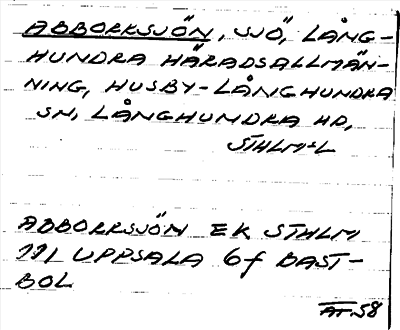 ABBORRSJÖN, SJÖ, LÅNG-
HUNDRA HÄRADSALLMÄN-
NING, HUSBY-LÅNGHUNDRA
SN, LÅNGHUNDRA HD,
STHLMS L
ABBORRSJÖN EK STHLM
111 UPPSALA 6f BAST-
BOL
AT.58